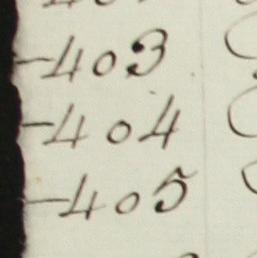 -403
-404
-405